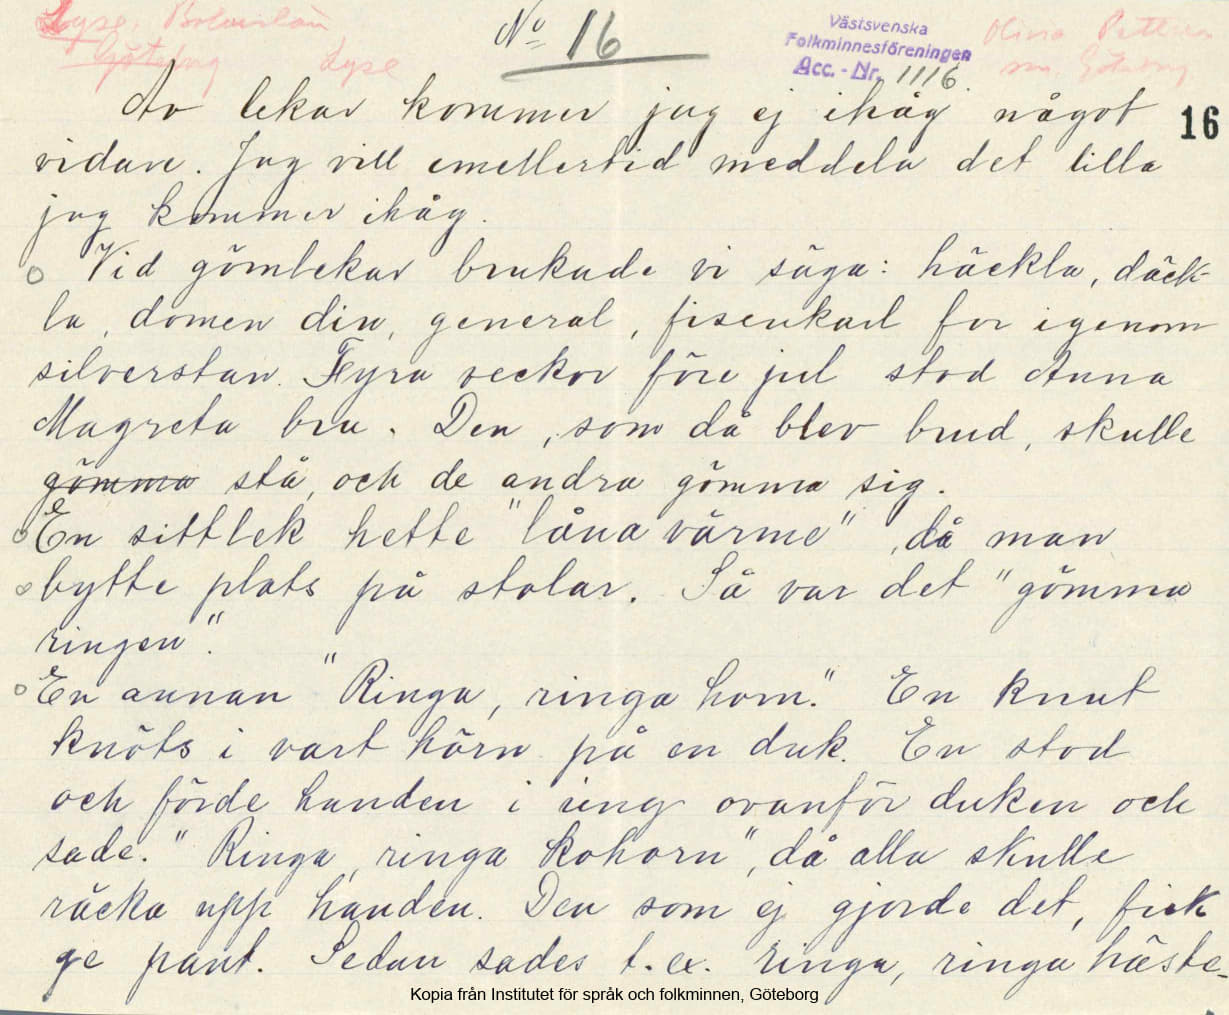 Lyse. Bohuslän
Göteborg Lyse
No 16
Västsvenska
Folkminnesföreningen
Acc.-Nr. 1116
Olina
Göteborg
16
Av lekar kommer jag ej ihåg något
vidare. Jag vill emellertid meddela det lilla
jag kommer ihåg.
Vid gömlekar brukade vi säga: häckla, däck-
la, domen din, general, fisenkarl for igenom
silverstan. Fyra veckor före jul stod Anna
Magreta bru. Den, som då blev brud, skulle
gömma stå, och de andra gömma sig.
En sittlek hette "låna värme", då man
bytte plats på stolar. Så var det "gömma
ringen".
En annan "Ringa, ringa horn." En knut
knöts i vart hörn på en duk. En stod
och förde handen i ring ovanför duken och
sade. "Ringa, ringa kohorn", då alla skulle
räcka upp handen. Den som ej gjorde det, fick
ge pant. Sedan sades t.ex. ringa, ringa häste-
Kopia från Institutet för språk och folkminnen, Göteborg